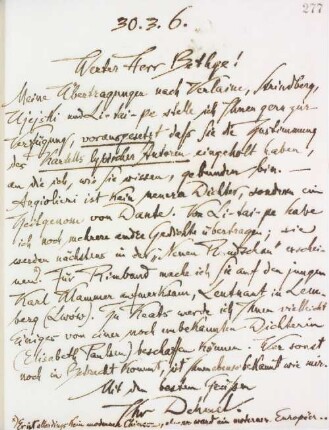 277
30.3.6.
Werter Herr Bethge!
Meine Übertragungen nach Verlaine, Strindberg,
Ujejski und Li-tai-pe stelle ich Ihnen gern zur
Verfügung, vorausgesetzt daß Sie die Zustimmung
des Kartells lyrischer Autoren eingeholt haben,
an die ich, wie Sie wissen, gebunden bin. —
Angiolieri ist kein neuerer Dichter, sondern ein
Zeitgenosse von Dante. Von Li-tai-pe habe
ich noch mehrere andre Gedichte übertragen; sie
werden nächstens in der „Neuen Rundschau" erschei-
nen. Für Rimbaud mache ich Sie auf den jungen
Karl Klammer aufmerksam, Leutnant in Lem-
berg (Lwow). Zu Keats werde ich Ihnen vielleicht
Einiges von einer noch unbekannten Dichterin
(Elisabeth) beschaffen können. Wer sonst
noch in Betracht kommt, ist Ihnen ebenso bekannt wie mir.
Mit den besten Grüßen
Ihr Dehmel.
ist allerdings kein moderner Chinese, aber er ward ein moderner Europäer..